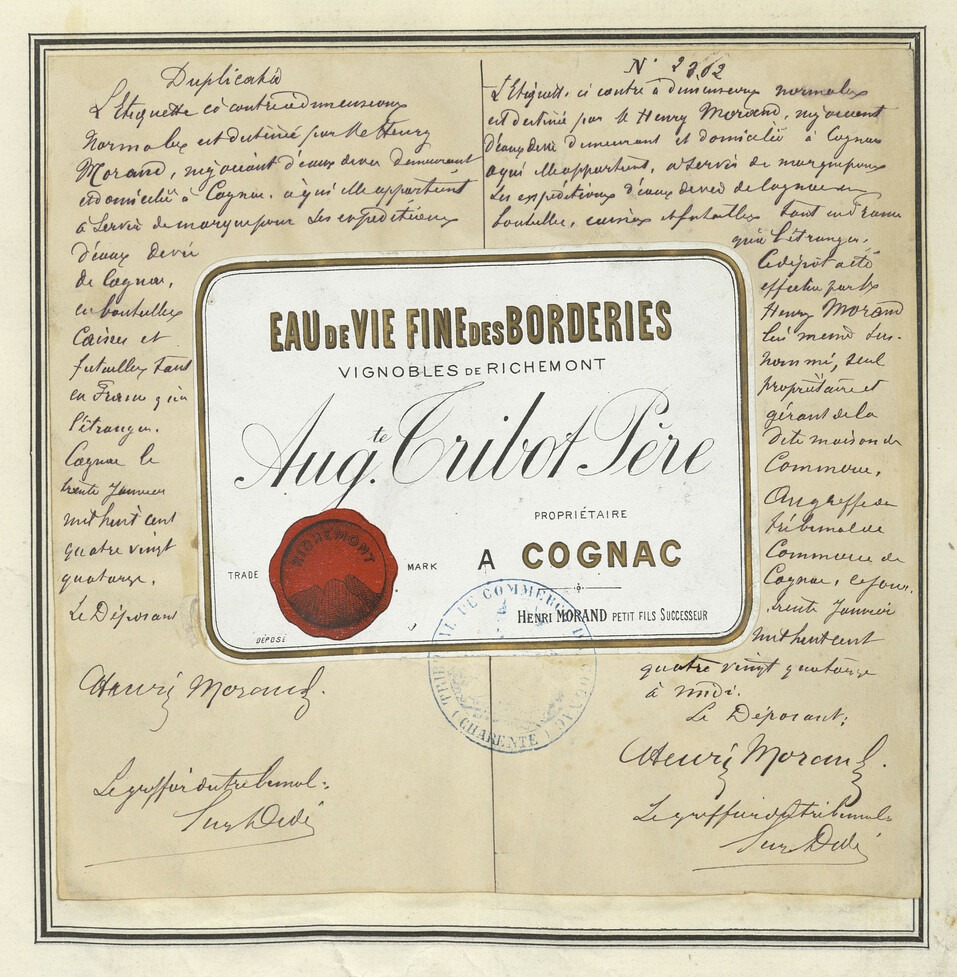 Duplicata
L'Etiquette ci contre a dimensions
normales est destinée par Mr Henry
Morand, négociant d'eaux de vie demeurant
et domicilié à Cognac, à qui elle appartient
à servir de marque pour les expéditions
d'eaux de vie
de Cognac,
en bouteilles
Caisses et
futailles tant
en France qu'à
l'étranger.
Cognac le
trente Janvier
mil huit cent
quatre vingt
quatorze.
Le Déposant
Henri Morand.
Le greffier du tribunal:
N° 2302
L'Etiquette ci contre à dimensions normales
est destinée par Mr Henry Morand, négociant
d'eaux de vie demeurant et domicilié à Cognac
à qui elle appartient, à servir de marque pour
les expéditions d'eaux de vie de Cognac en
bouteilles, caisses et futailles tant en France
qu'à l'étranger.
Ce dépôt a été
effectué par Mr
Henry Morand
lui même sus-
nommé, seul
propriétaire et
gérant de la
dite maison de
Commerce,
Au greffe du
tribunal de
Commerce de
Cognac, ce jour
trente Janvier
mil huit cent
quatre vingt quatorze
à midi.
Le Déposant:
Henri Morand.
Le greffier du tribunal:
EAU DE VIE FINE DES BORDERIES
VIGNOBLES DE RICHEMONT
Augte. Tribot Père
PROPRIÉTAIRE
A COGNAC
TRADE MARK
RICHEMONT
DÉPOSÉ
HENRI MORAND PETIT FILS SUCCESSEUR
TRIBUNAL DE COMMERCE DE COGNAC
(CHARENTE)